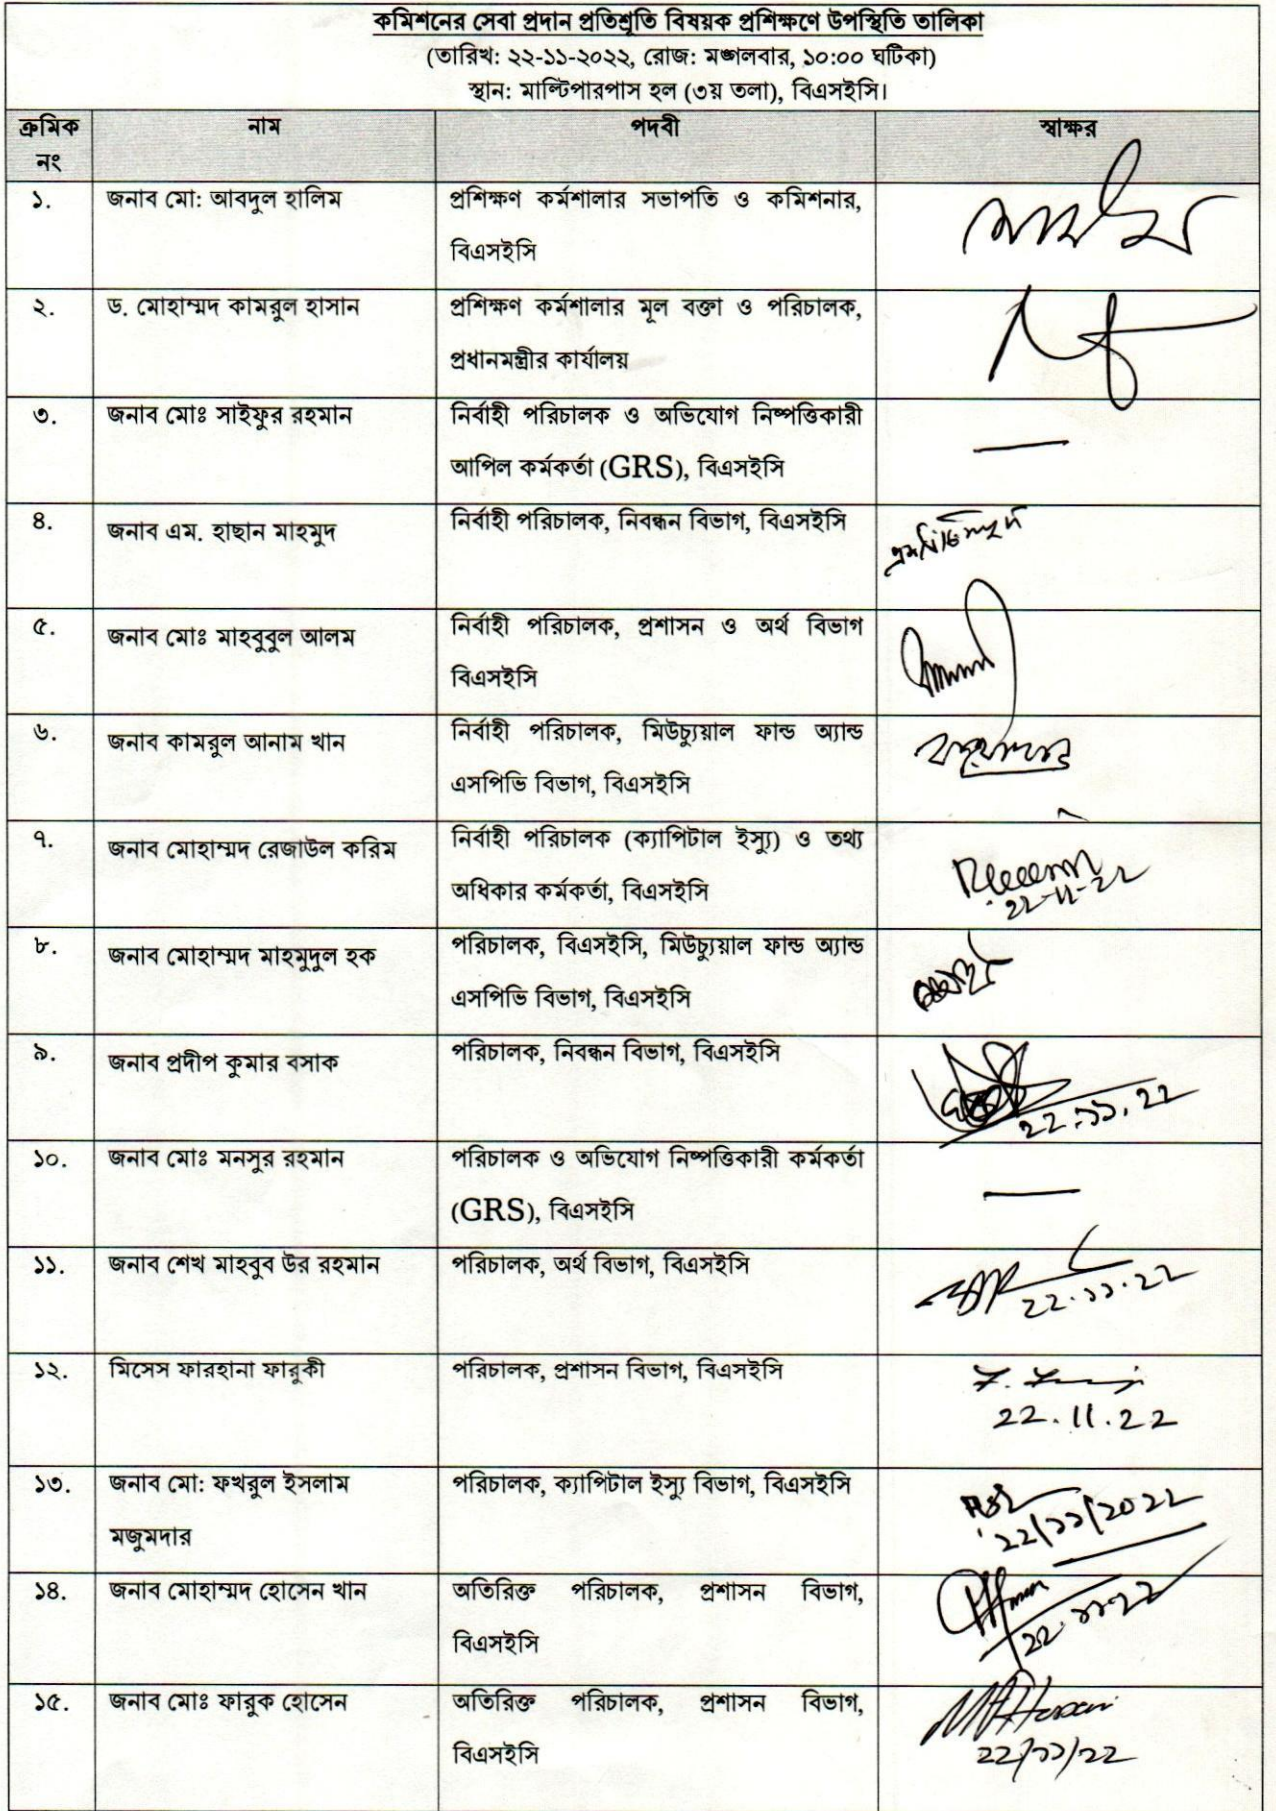 কমিশনের সেবা প্রদান প্রতিশ্রুতি বিষয়ক প্রশিক্ষণে উপস্থিতি তালিকা
(তারিখ: ২২-১১-২০২২, রোজ: মঙ্গলবার, ১০:০০ ঘটিকা)
স্থান: মাল্টিপারপাস হল (৩য় তলা), বিএসইসি।
ক্রমিক নাম পদবী স্বাক্ষর
নং
১. জনাব মো: আবদুল হালিম প্রশিক্ষণ কর্মশালার সভাপতি ও কমিশনার,
বিএসইসি
২. ড. মোহাম্মদ কামরুল হাসান প্রশিক্ষণ কর্মশালার মূল বক্তা ও পরিচালক,
প্রধানমন্ত্রীর কার্যালয়
৩. জনাব মোঃ সাইফুর রহমান নির্বাহী পরিচালক ও অভিযোগ নিষ্পত্তিকারী
আপিল কর্মকর্তা (GRS), বিএসইসি
৪. জনাব এম. হাছান মাহমুদ নির্বাহী পরিচালক, নিবন্ধন বিভাগ, বিএসইসি
৫. জনাব মোঃ মাহবুবুল আলম নির্বাহী পরিচালক, প্রশাসন ও অর্থ বিভাগ
বিএসইসি
৬. জনাব কামরুল আনাম খান নির্বাহী পরিচালক, মিউচ্যুয়াল ফান্ড অ্যান্ড
এসপিভি বিভাগ, বিএসইসি
৭. জনাব মোহাম্মদ রেজাউল করিম নির্বাহী পরিচালক (ক্যাপিটাল ইস্যু) ও তথ্য
অধিকার কর্মকর্তা, বিএসইসি
22-11-22
৮. জনাব মোহাম্মদ মাহমুদুল হক পরিচালক, বিএসইসি, মিউচ্যুয়াল ফান্ড অ্যান্ড
এসপিভি বিভাগ, বিএসইসি
৯. জনাব প্রদীপ কুমার বসাক পরিচালক, নিবন্ধন বিভাগ, বিএসইসি
২২.১১.২২
১০. জনাব মোঃ মনসুর রহমান পরিচালক ও অভিযোগ নিষ্পত্তিকারী কর্মকর্তা
(GRS), বিএসইসি
১১. জনাব শেখ মাহবুব উর রহমান পরিচালক, অর্থ বিভাগ, বিএসইসি
২২.১১.২২
১২. মিসেস ফারহানা ফারুকী পরিচালক, প্রশাসন বিভাগ, বিএসইসি
22.11.22
১৩. জনাব মো: ফখরুল ইসলাম পরিচালক, ক্যাপিটাল ইস্যু বিভাগ, বিএসইসি
মজুমদার
২২/১১/২০২২
১৪. জনাব মোহাম্মদ হোসেন খান অতিরিক্ত পরিচালক, প্রশাসন বিভাগ,
বিএসইসি
২২.১১.২২
১৫. জনাব মোঃ ফারুক হোসেন অতিরিক্ত পরিচালক, প্রশাসন বিভাগ,
বিএসইসি
২২/১১/২২